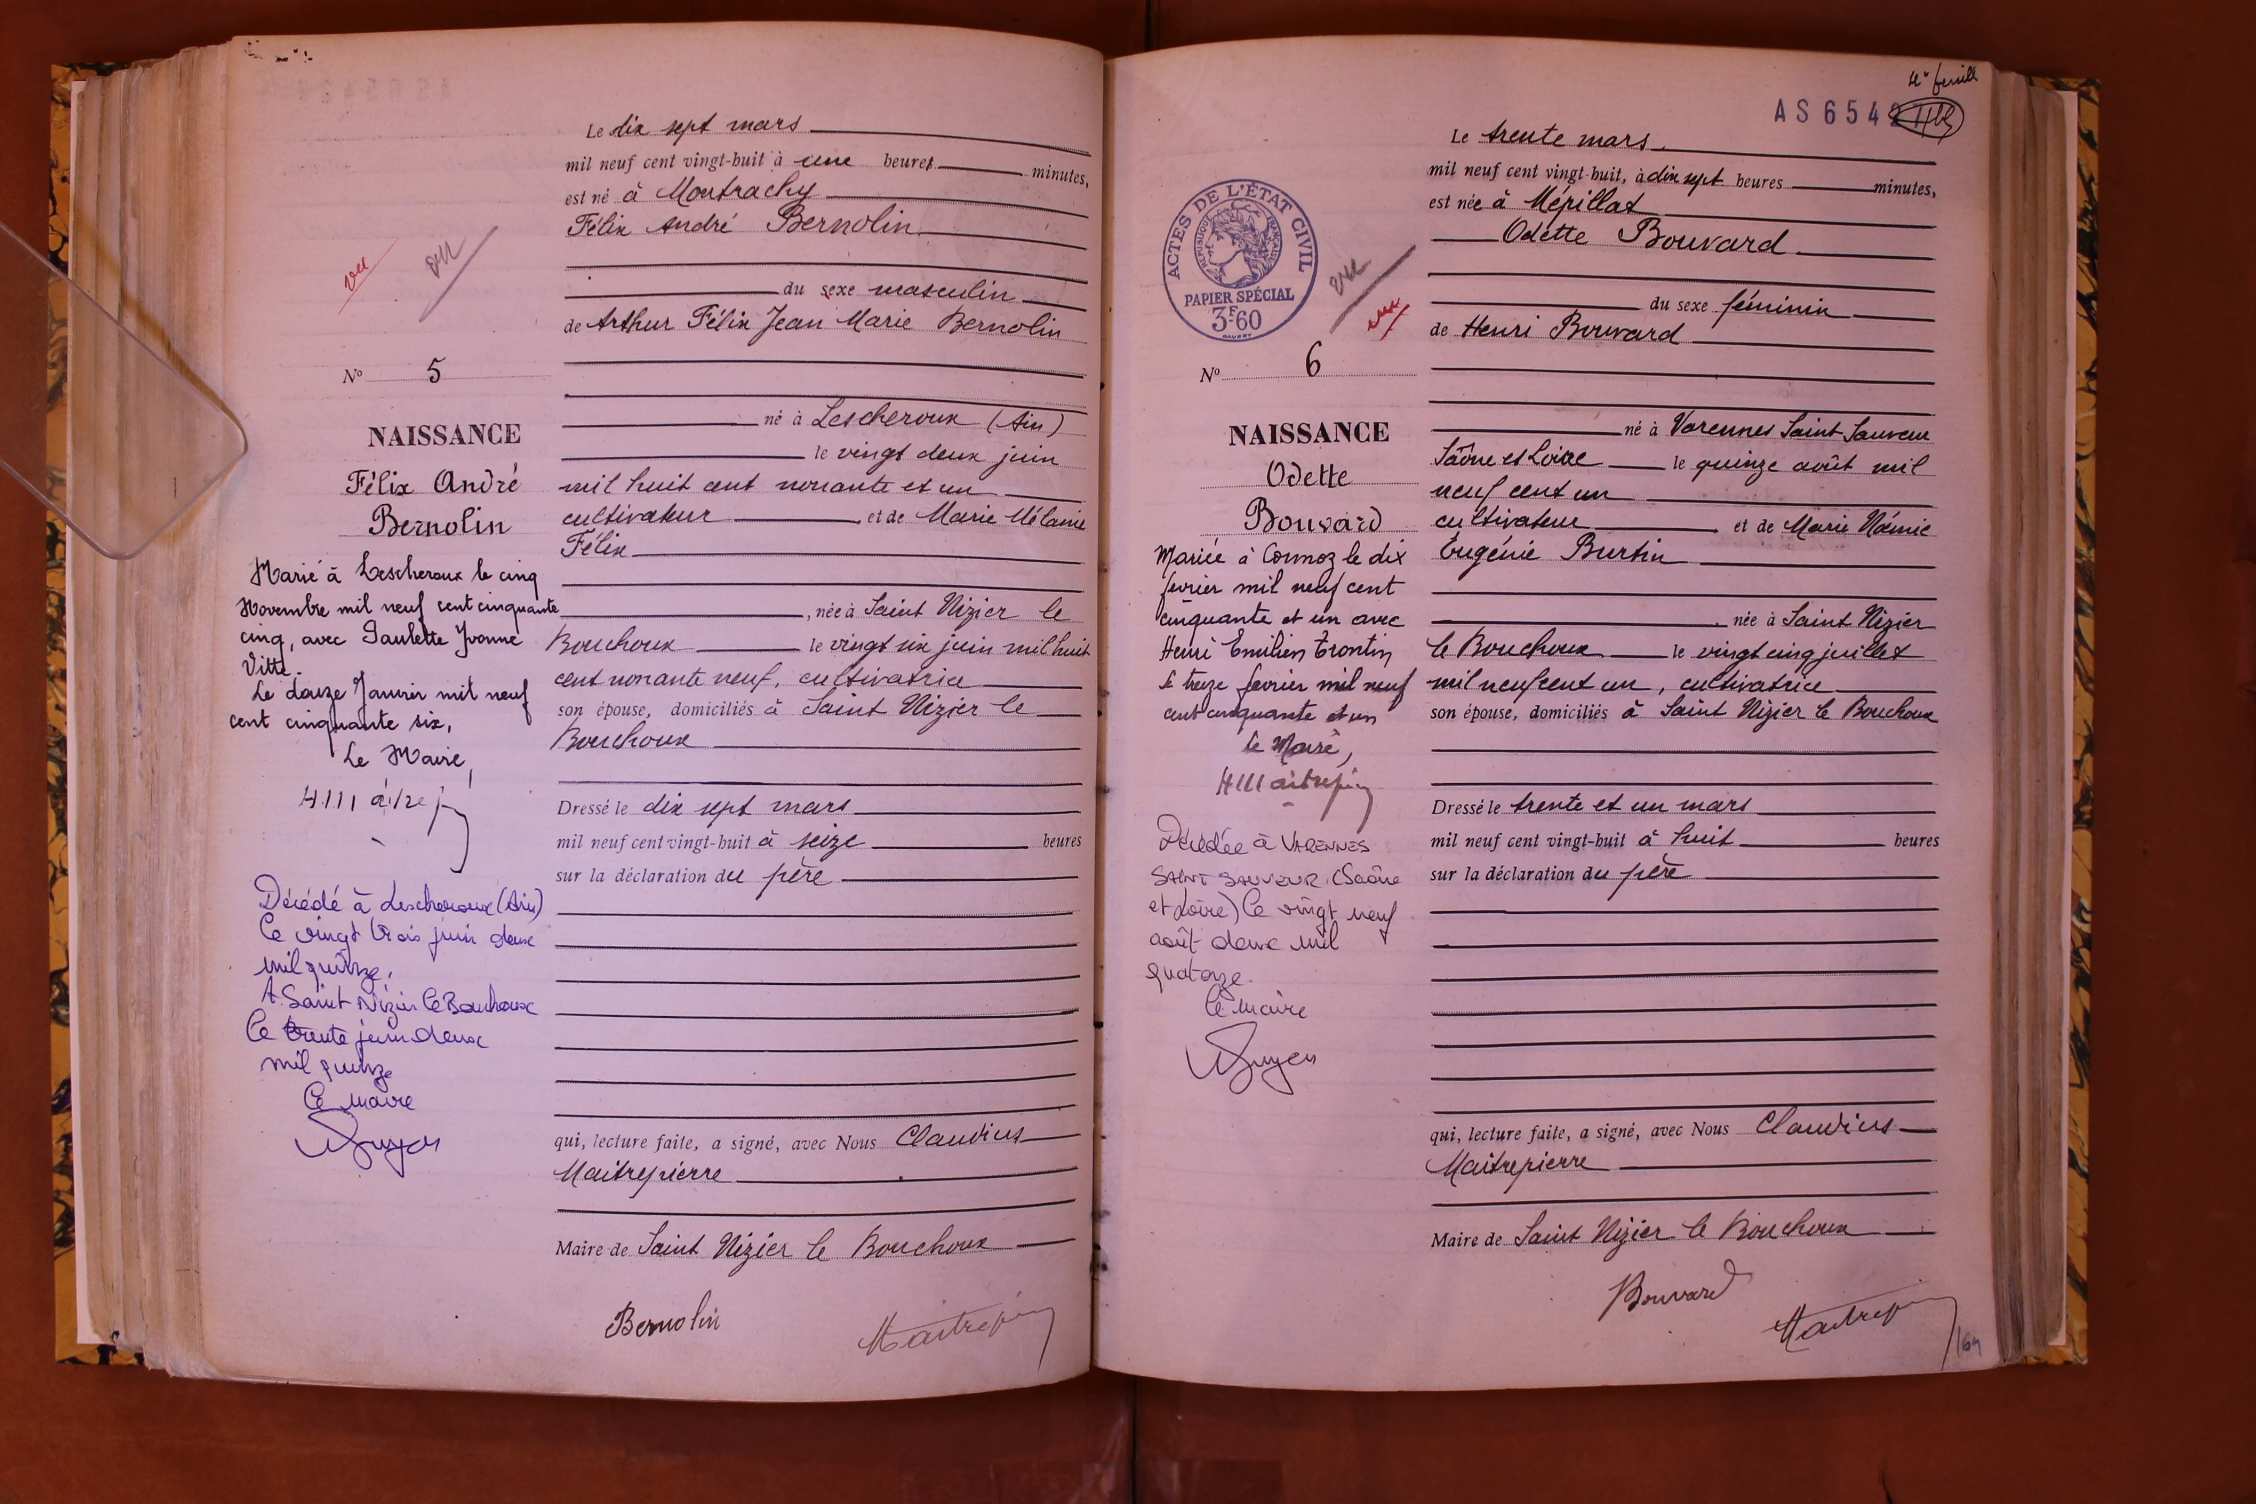 Le dix sept mars
mil neuf cent vingt-huit à une heures minutes,
est né à Montrachy
Félix André Bernolin
du sexe masculin
de Arthur Félix Jean Marie Bernolin
né à Lescheroux (Ain)
le vingt deux juin
mil huit cent nonante et un
cultivateur et de Marie Mélanie
Félix
, née à Saint Nizier le
Bouchoux le vingt six juin mil huit
cent nonante neuf, cultivatrice
son épouse, domiciliés à Saint Nizier le
Bouchoux
Dressé le dix sept mars
mil neuf cent vingt-huit à seize heures
sur la déclaration du père
qui, lecture faite, a signé, avec Nous Claudius
Maitrepierre
Maire de Saint Nizier le Bouchoux
Bernolin
vu
vu
No 5
NAISSANCE
Félix André
Bernolin
Marié à Lescheroux le cinq
Novembre mil neuf cent cinquante
cinq, avec Paulette Yvonne
Vitte.
Le douze Janvier mil neuf
cent cinquante six,
Le Maire,
Décédé à Lescheroux (Ain)
Le vingt trois juin deux
mil quinze.
A Saint Nizier le Bouchoux
Le trente juin deux
mil quinze
Le maire
4e feuille
AS 6542
Le trente mars
mil neuf cent vingt-huit, à dix sept heures minutes,
est née à Mépillat
Odette Bouvard
du sexe féminin
de Henri Bouvard
né à Varennes Saint Sauveur
Saône et Loire le quinze août mil
neuf cent un
cultivateur et de Marie Noémie
Eugénie Burtin
née à Saint Nizier
le Bouchoux le vingt cinq juillet
mil neuf cent un, cultivatrice
son épouse, domiciliés à Saint Nizier le Bouchoux
Dressé le trente et un mars
mil neuf cent vingt-huit à huit heures
sur la déclaration du père
qui, lecture faite, a signé, avec Nous Claudius
Maitrepierre
Maire de Saint Nizier le Bouchoux
Bouvard
ACTES DE L'ÉTAT CIVIL
RÉPUBLIQUE FRANÇAISE
PAPIER SPÉCIAL
3F60
vu
vu
No 6
NAISSANCE
Odette
Bouvard
Mariée à Cormoz le dix
février mil neuf cent
cinquante et un avec
Henri Emilien Trontin
le treize février mil neuf
cent cinquante et un
le Maire,
Décédée à VARENNES
SAINT SAUVEUR (Saône
et Loire) le vingt neuf
août deux mil
quatorze.
Le maire